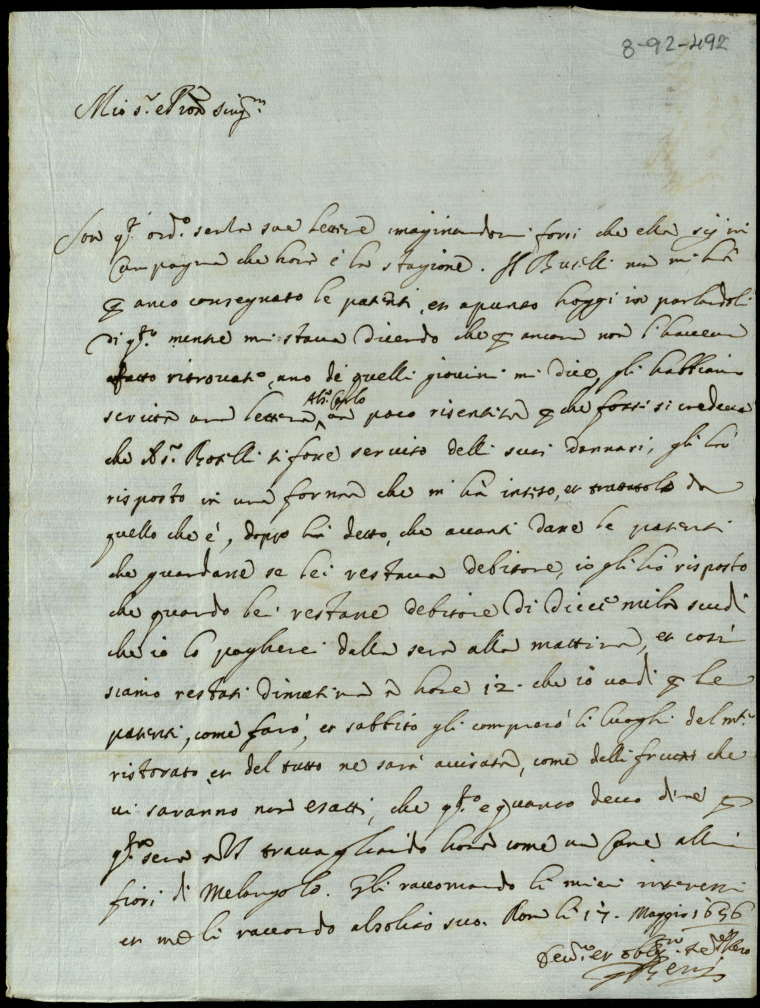 8-92-492
Mio s.r e Pron sing.m
Son q.to ord.o senza sue lettere imaginandomi forsi che ella sij in
Campagna che hora è la stagione. Il Buselli non mi hà
anco consegnato le patenti, et apunto hoggi io parlandoli
di q.to mentre mi stava dicendo che ancora non l'haveva
ritrovate, uno de quelli giovini mi dice, gli habbiamo
una lettera Al s.r Carlo un poco risentita che forsi si credeva
che il s.r Boselli si fosse servito delli suoi dannari, gli hò
risposto in una forma che m'hà inteso, et da
quello che è, doppo hà detto, che avanti dare le patenti
che guardasse se lei restava debitore, io gli hò risposto
che quando lei restasse debitore di dieci mila scudi
che io lo pagherei dalla sera alla mattina, et così
siamo restati dimatina à hore 12. che io vadi le
patenti, come farò, et subbito gli comprarò li luoghi del m.te
ristorato, et del tutto ne sarà avisata, come delli frutti che
vi saranno non esatti, che q.to e quanto devo dire
q.ta sera travagliando hora come un Cane alli
fiori di Melangolo. Gli raccomando li miei interessi
et me li raccordo al solito suo. Roma li 17. Maggio 1656
Dev.mo et oblig.mo se.re vero